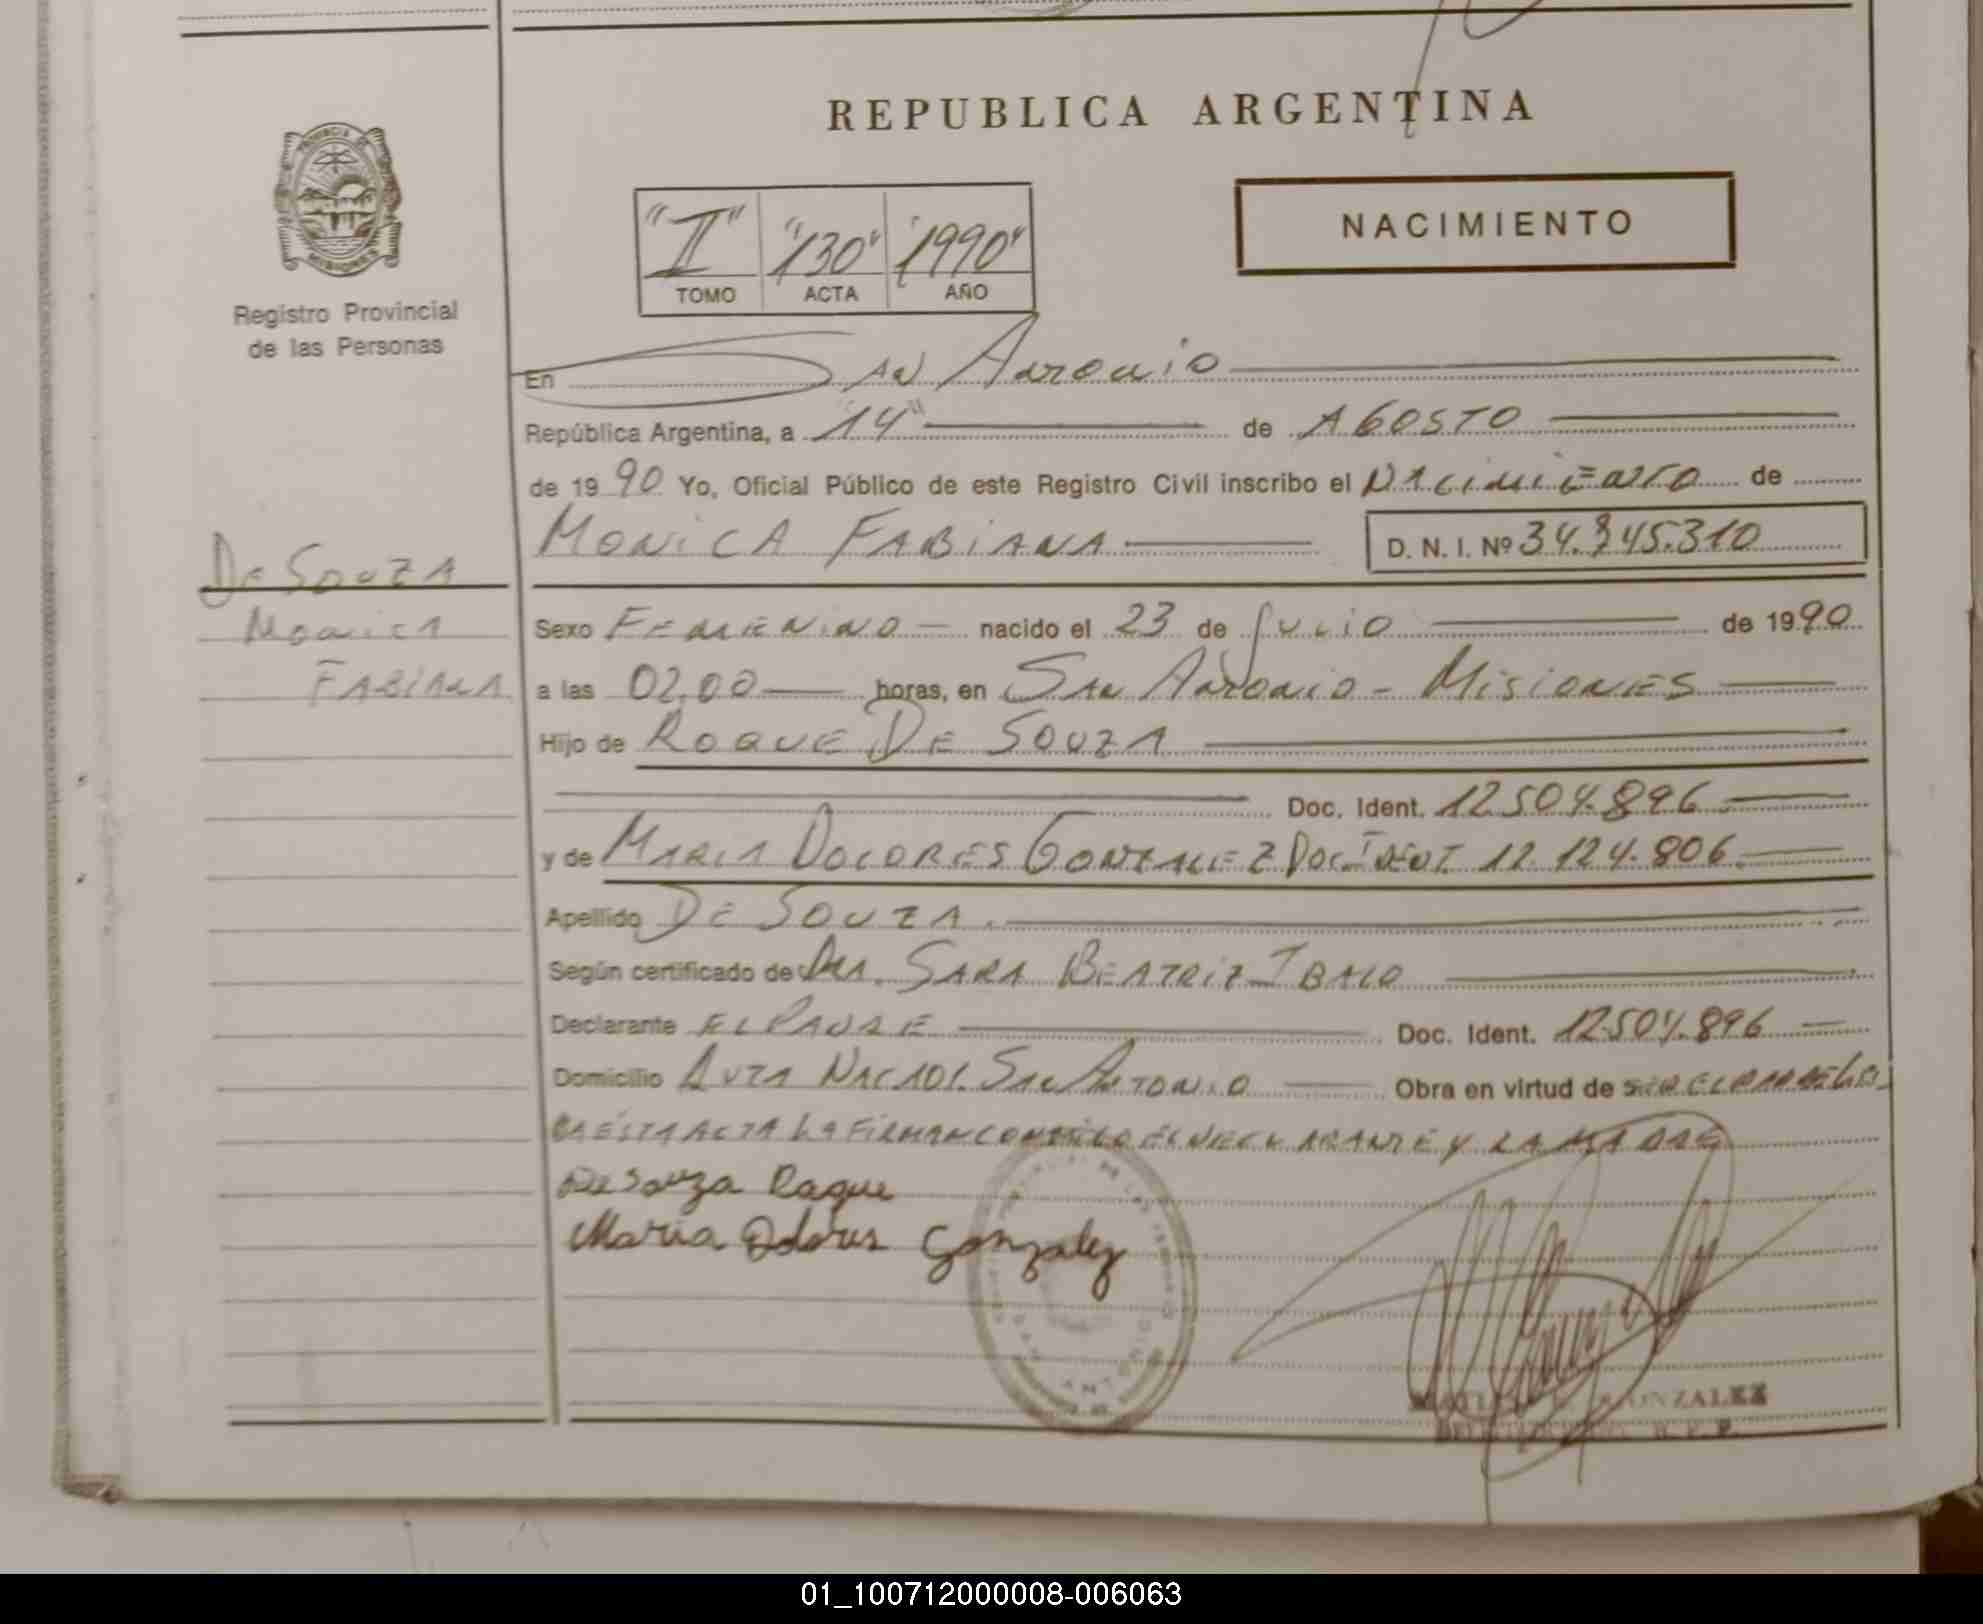 REPUBLICA ARGENTINA
PROVINCIA DE MISIONES
Registro Provincial
de las Personas
NACIMIENTO
"II" "130" "1990"
TOMO ACTA AÑO
En SAN ANTONIO
República Argentina, a "14" de AGOSTO
de 1990 Yo, Oficial Público de este Registro Civil inscribo el NACIMIENTO de
MONICA FABIANA D. N. I. Nº 34. 45.310
DE SOUZA
MONICA
FABIANA
Sexo FEMENINO nacido el 23 de JULIO de 1990
a las 02,00 horas, en SAN ANTONIO - MISIONES
Hijo de ROQUE DE SOUZA
Doc. Ident. 12.504.896
y de MARIA DOLORES GONZALEZ DOC. IDENT. 12.124.806
Apellido DE SOUZA
Según certificado de DRA. SARA BEATRIZ
Declarante EL PADRE Doc. Ident. 12.504.896
Domicilio RUTA NAC 101. SAN ANTONIO Obra en virtud de SER EL PADRE
ESTA ACTA LA FIRMAN CONMIGO EL DECLARANTE Y LA MADRE
De Souza Roque
Maria Dolores Gonzalez
SAN ANTONIO
GONZALEZ
R. P. P.
01_100712000008-006063